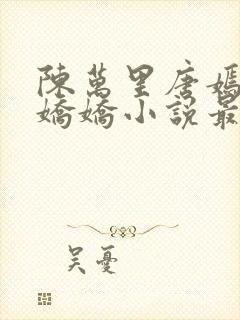 陳萬里唐嫣
嬌嬌小說最
吴憂